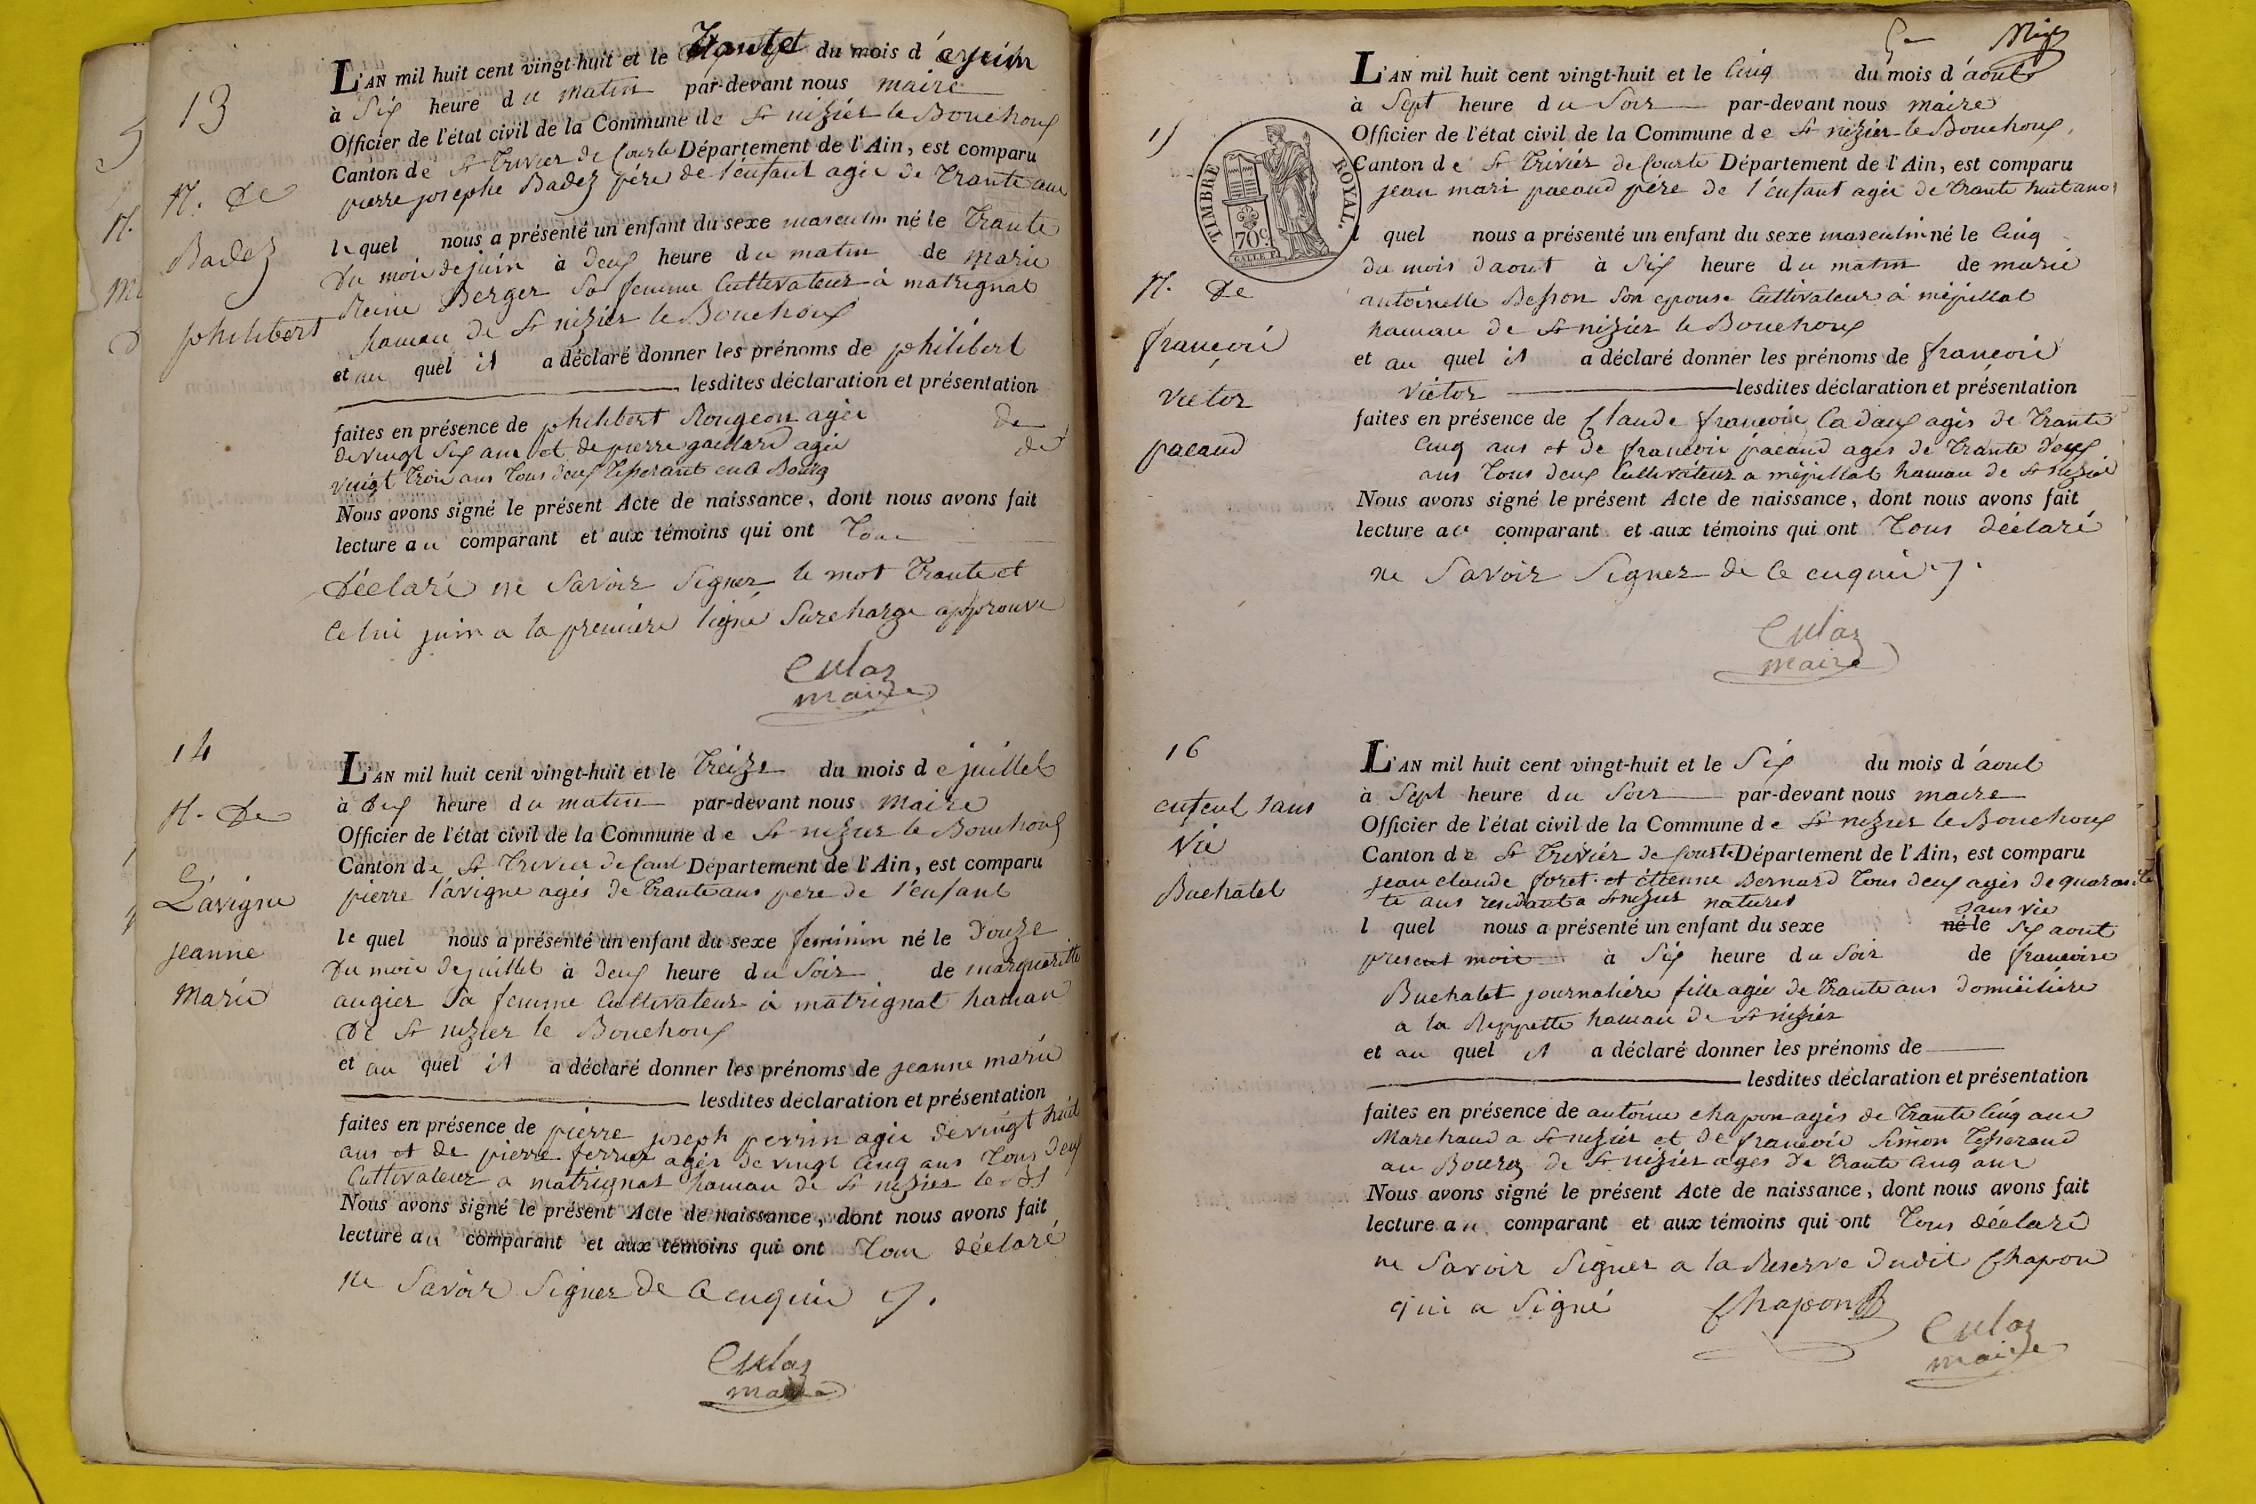 13
N. De
Badez
philibert
L'AN mil huit cent vingt-huit et le Trante du mois de juin
à Six heure du matin par-devant nous maire
Officier de l'état civil de la Commune de St nizier le Bouchoux
Canton de St Trivier de Courte Département de l'Ain, est comparu
pierre josephe Badez pére de l'enfant agée de Trante ans
le quel nous a présenté un enfant du sexe masculin né le Trante
Du mois de juin à deux heure du matin de marie
Reine Berger Sa femme Cultivateur à matrignat
hamau de St nizier le Bouchoux
et au quel il a déclaré donner les prénoms de philibert
lesdites déclaration et présentation
faites en présence de philibert Rougeon agée de
de vingt Six ans et de pierre gaillard agée de
vingt Trois ans Tous deux Tisserant au Bourg
Nous avons signé le présent Acte de naissance, dont nous avons fait
lecture au comparant et aux témoins qui ont Tous
Déclaré ne Savoir Signer le mot Trante et
Celui juin a la première ligne Surcharge approuve
Culaz
maire
14
N. De
Lavigne
jeanne
Marie
L'AN mil huit cent vingt-huit et le Treize du mois de juillet
à dix heure du matin par-devant nous Maire
Officier de l'état civil de la Commune de St nizier le Bouchoux
Canton de St Trivier de Court Département de l'Ain, est comparu
pierre lavigne agés de Trante ans pere de l'enfant
le quel nous a présenté un enfant du sexe feminin né le Douze
Du mois de juillet à deux heure du Soir de margueritte
augier Sa femme Cultivateur à matrignat hamau
De St nizier le Bouchoux
et au quel il a déclaré donner les prénoms de jeanne marie
lesdites déclaration et présentation
faites en présence de pierre joseph perrin agée de vingt huit
ans et de pierre ferrier agés de vingt Cinq ans Tous deux
Cultivateur a matrignat hamau de St nizier le Bx
Nous avons signé le présent Acte de naissance, dont nous avons fait
lecture au comparant et aux témoins qui ont Tous déclaré
ne Savoir Signer de Ce enquis
Culaz
maire
5e
15
N. De
françois
victor
pacaud
TIMBRE ROYAL.
70c.
L'AN mil huit cent vingt-huit et le Cinq du mois d'aout
à Sept heure du Soir par-devant nous maire
Officier de l'état civil de la Commune de St nizier le Bouchoux,
Canton de St Trivier de Courte Département de l'Ain, est comparu
jean mari pacaud pére de l'enfant agée de Trante huit ans
l quel nous a présenté un enfant du sexe masculin né le Cinq
du mois d'aout à Six heure du matin de marie
antoinette Besson Son epouse Cultivateur à méjillat
hamau de St nizier le Bouchoux
et au quel il a déclaré donner les prénoms de françois
victor lesdites déclaration et présentation
faites en présence de Claude françois Cadoux agés de Trante
Cinq ans et de françois pacaud agés de Trante deux
ans Tous deux Cultivateur a méjillat hamau de St nizier
Nous avons signé le présent Acte de naissance, dont nous avons fait
lecture au comparant et aux témoins qui ont Tous déclaré
ne Savoir Signer de Ce enquis
Culaz
maire
16
enfent sans
vie
Buchatet
L'AN mil huit cent vingt-huit et le Six du mois d'aout
à Sept heure du Soir par-devant nous maire
Officier de l'état civil de la Commune de St nizier le Bouchoux
Canton de St Trivier de Courte Département de l'Ain, est comparu
jean claude foret et étienne Bernard Tous deux agés de quarante
ans residant a St nizier
sans vie
l quel nous a présenté un enfant du sexe né le Six aout
present mois à Six heure du Soir de françoise
Buchatet journalière fille agée de Trante ans domicilière
a la Reppette hamau de St nizier
et au quel il a déclaré donner les prénoms de
lesdites déclaration et présentation
faites en présence de antoine chapon agés de Trante Cinq ans
Marchand a St nizier et de françois Simon Tisserand
au Bourg de St nizier agés de Trante Cinq ans
Nous avons signé le présent Acte de naissance, dont nous avons fait
lecture au comparant et aux témoins qui ont Tous déclaré
ne Savoir Signer a la Reserve dudit Chapon
qui a Signé
Chapon
Culaz
maire